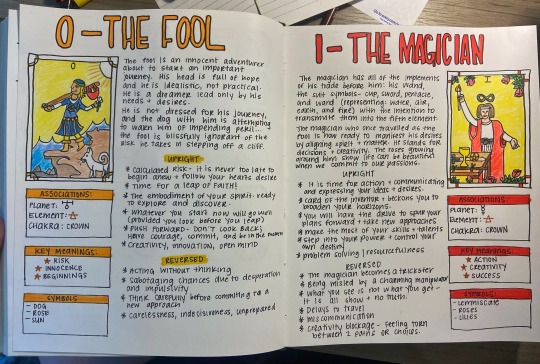 0 - THE FOOL
The fool is an innocent adventurer
about to start an important
journey. His head is full of hope
and he is idealistic, not practical.
He is a dreamer lead only by his
needs + desires.
He is not dressed for his journey,
and the dog with him is attempting
to warn him of impending peril...
the fool is blissfully ignorant of the
risk he takes in stepping off a cliff.
UPRIGHT
* calculated risk - it is never too late to
begin anew + follow your hearts desire
* Time for a leap of FAITH!
* The embodiment of your spirit - ready
to explore and discover.
* whatever you start now will go well
(provided you look before you leap)
* PUSH FORWARD - DON'T LOOK BACK;
have courage, commit, and be in the moment
* Creativity, innovation, open mind
REVERSED
* Acting without thinking
* Sabotaging chances due to desperation
and impulsivity
* Think carefully before committing to a
new approach
* Carelessness, indecisiveness, unprepared
ASSOCIATIONS:
PLANET:
ELEMENT:
CHAKRA: CROWN
KEY MEANINGS:
★ RISK
★ INNOCENCE
★ BEGINNINGS
SYMBOLS
- DOG
- ROSE
- SUN
I - THE MAGICIAN
The magician has all of the implements
of his trade before him: his wand,
the suit symbols - cup, sword, pentacle,
and wand (representing: water, air,
earth, and fire) with the intention to
transmute them into the fifth element.
The magician who once travelled as the
fool is now ready to manifest his desires
by aligning spirit + matter. He stands for
decisions + creativity. The roses growing
around him show life can be beautiful
when we commit to our passions.
UPRIGHT
* It is time for action + communicating
and expressing your ideas + desires.
* card of the inventor + beckons you to
broaden your horizons
* You will have the drive to spur your
plans forward + take new approaches
* make the most of your skills + talents
* step into your power + control your
own destiny
* problem solving | resourcefulness
REVERSED
* The magician becomes a trickster
* Being misled by a charming manipulator
* what you see is not what you get -
it is all show + no truth!
* Delays to travel
* miscommunication
* creativity blockage - feeling torn
between 2 paths or choices.
ASSOCIATIONS:
PLANET: ☿
ELEMENT:
CHAKRA: CROWN
KEY MEANINGS:
★ ACTION
★ CREATIVITY
★ SUCCESS
SYMBOLS:
- Lemniscate
- ROSES
- LILIES